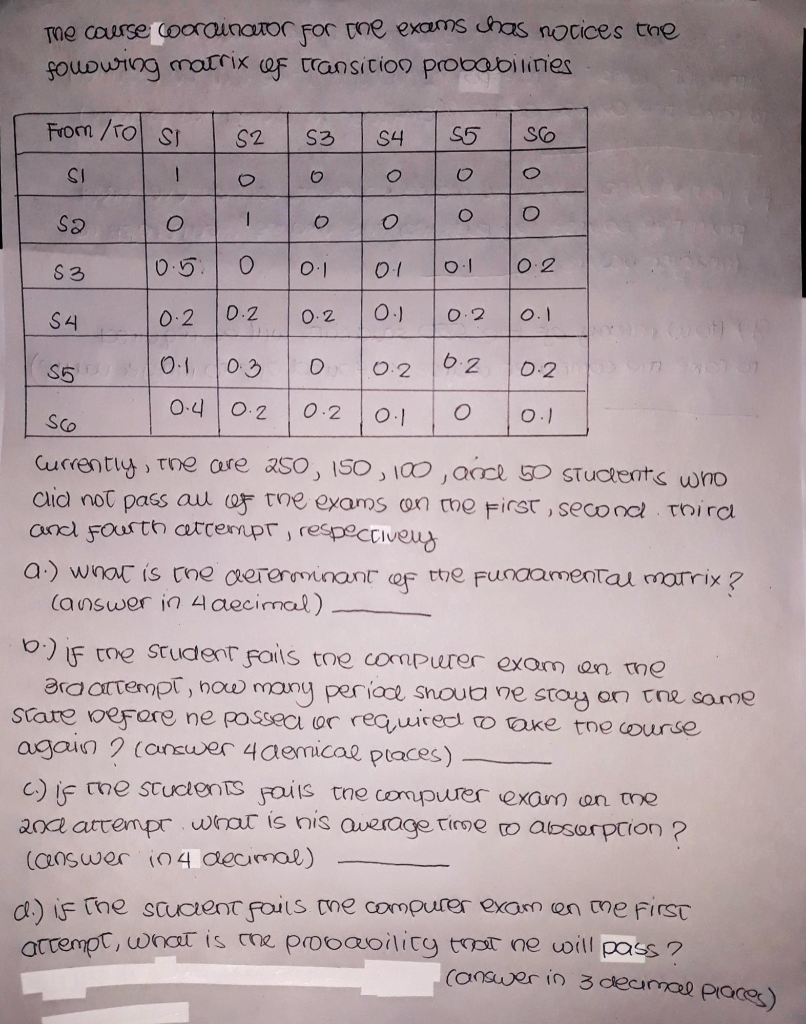 The course coordinator for the exams has notices the
following matrix of transition probabilities
From /TO S1 S2 S3 S4 S5 S6
S1 1 0 0 0 0 0
S2 0 1 0 0 0 0
S3 0.5 0 0.1 0.1 0.1 0.2
S4 0.2 0.2 0.2 0.1 0.2 0.1
S5 0.1 0.3 0 0.2 0.2 0.2
S6 0.4 0.2 0.2 0.1 0 0.1
Currently, The are 250, 150, 100, and 50 students who
did not pass all of the exams on the first, second. third
and fourth attempt, respectively
a.) what is the determinant of the fundamental matrix?
(answer in 4 decimal)
b.) if the student fails the computer exam on the
3rd attempt, how many period should he stay on the same
state before he passed or required to take the course
again? (answer 4 demical places)
c.) if the students fails the computer exam on the
2nd attempt. what is his average time to absorption?
(answer in 4 decimal)
d.) if the student fails the computer exam on the first
attempt, what is the probability that he will pass?
(answer in 3 decimal places)